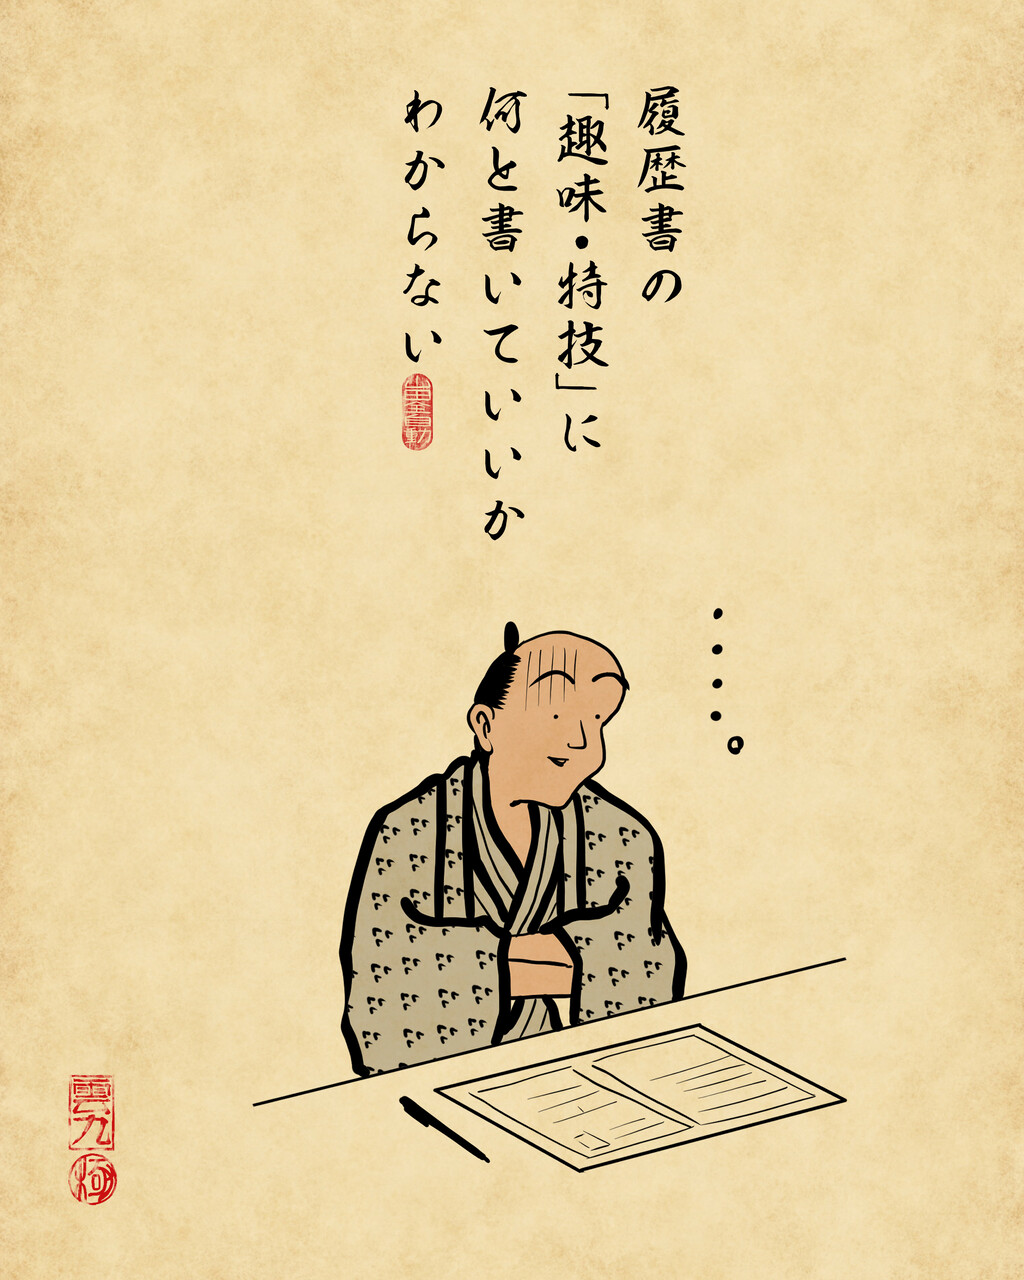 履歴書の
「趣味・特技」に
何と書いていいか
わからない